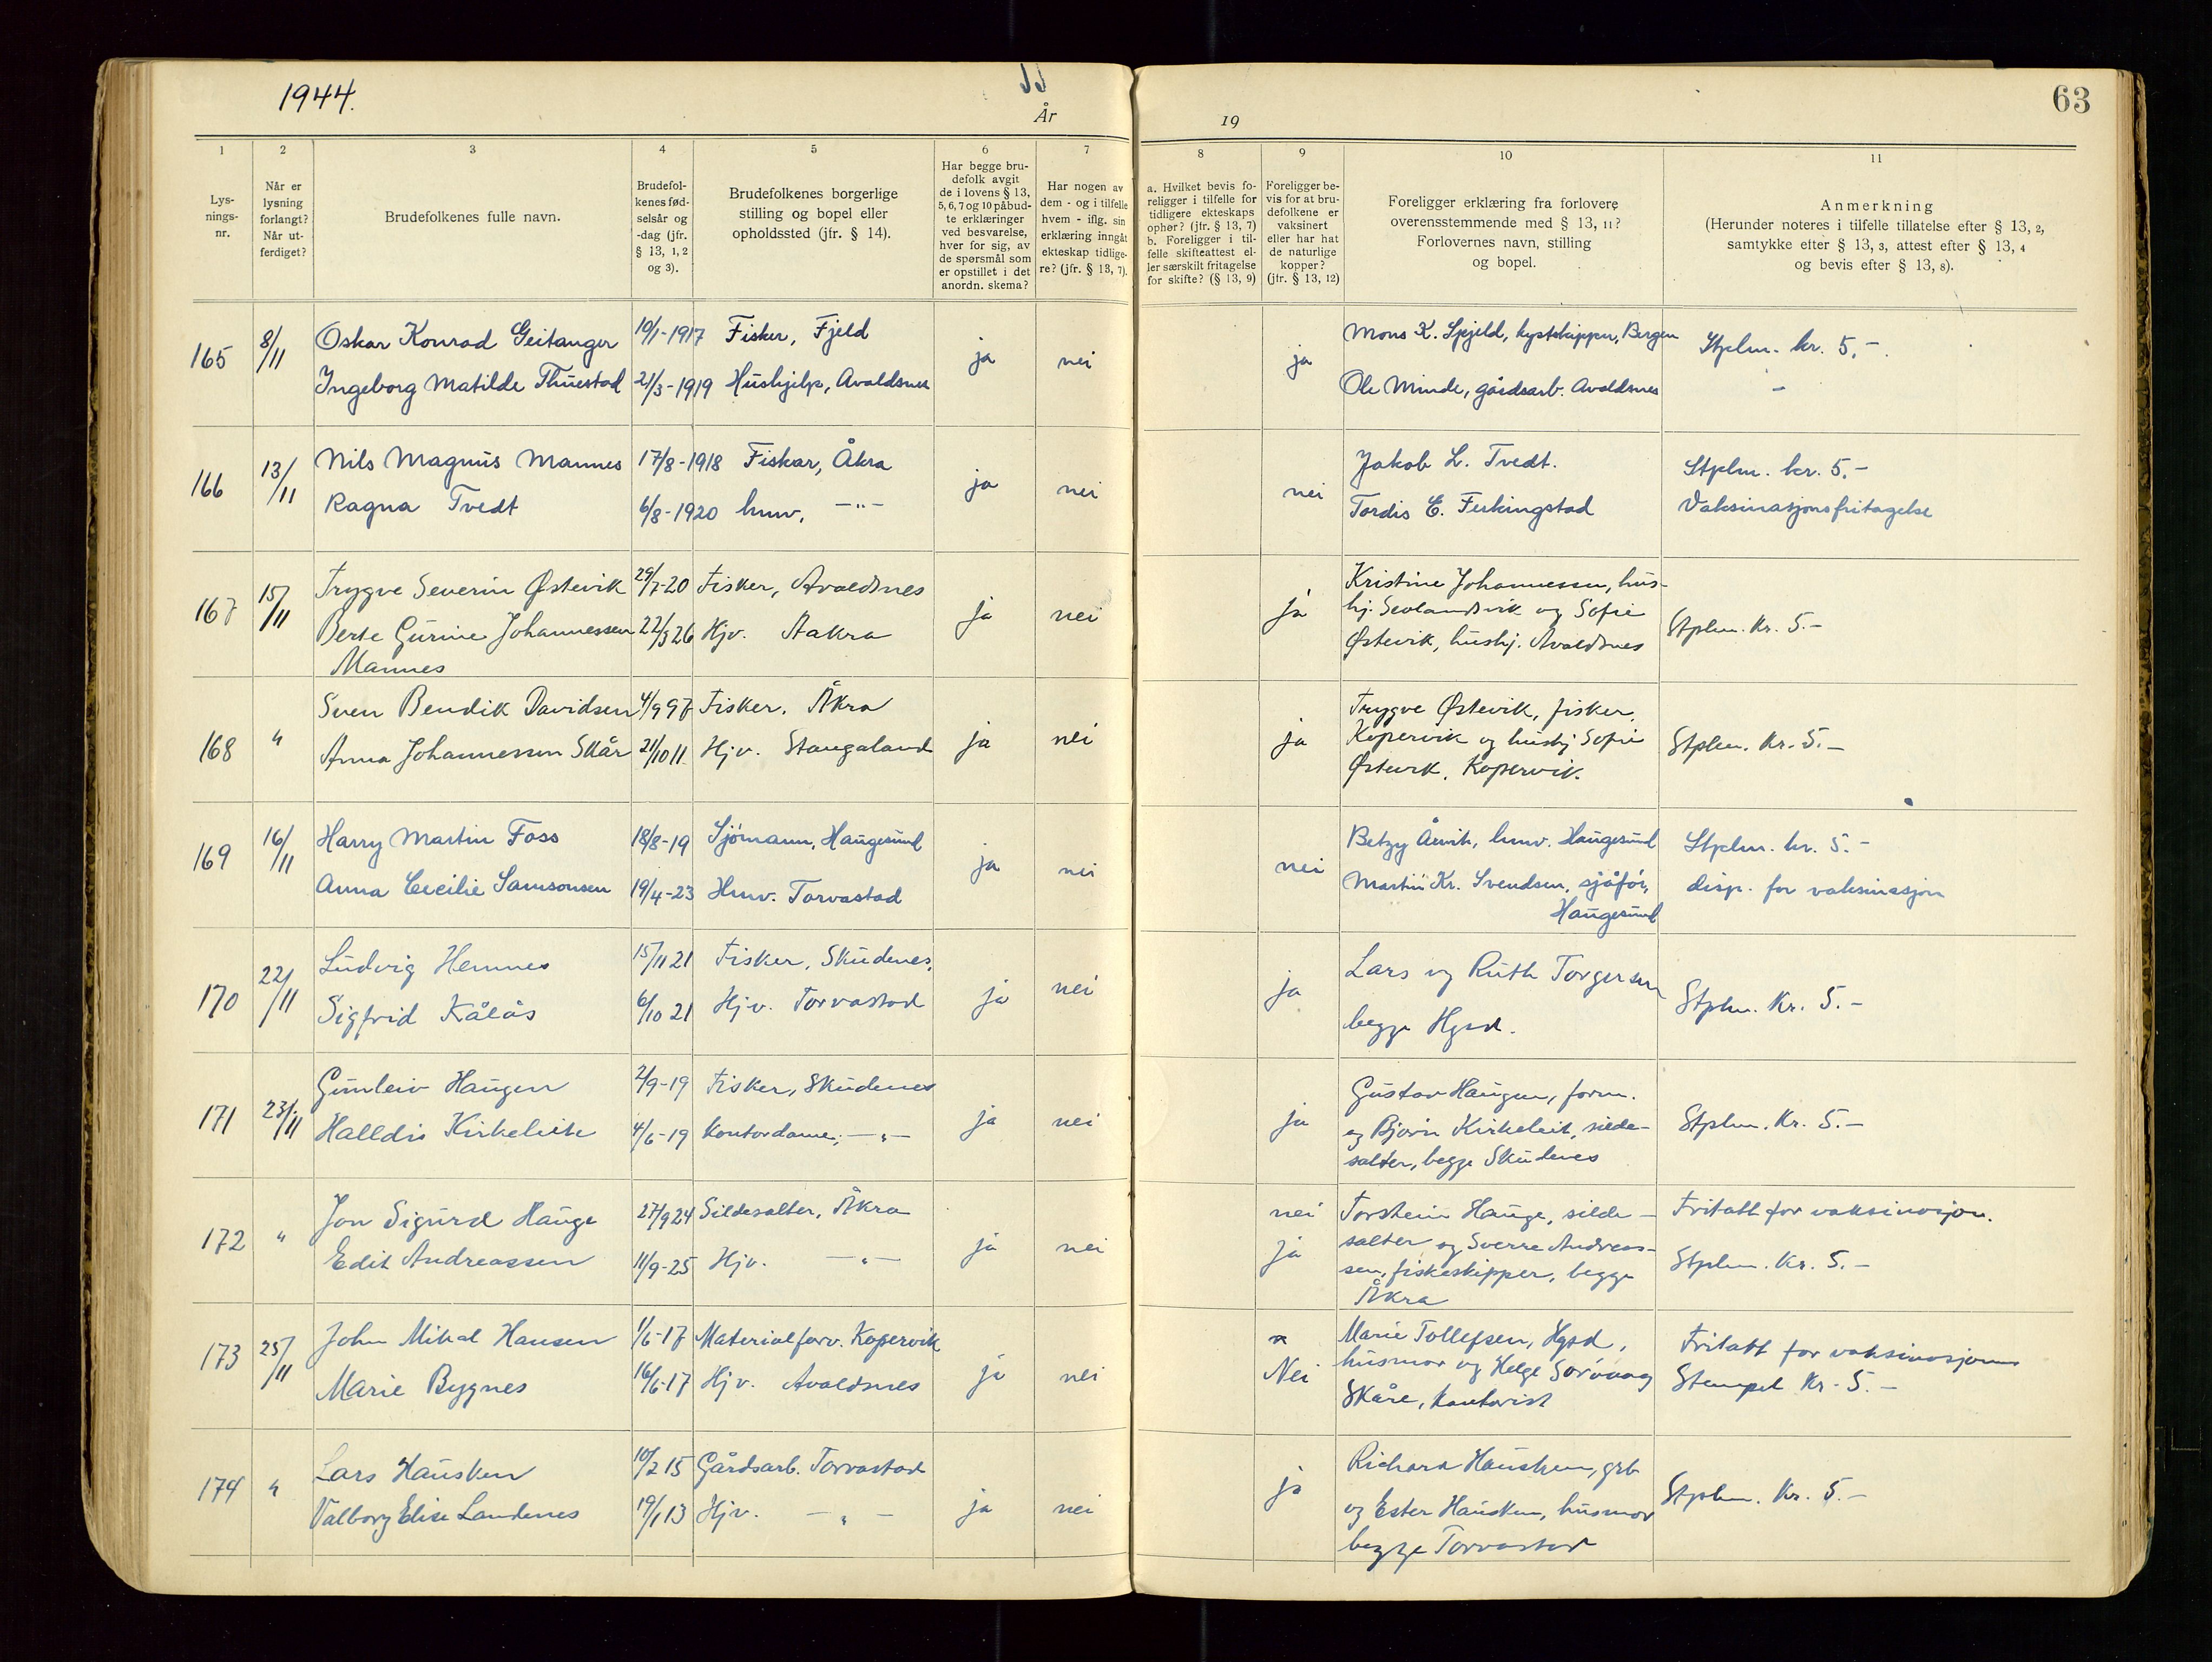 1944.
År
19
63
1
2
3
4
5
6
7
8
9
10
11
Lys-
nings-
nr.
Når er
lysning
forlangt?
Når ut-
ferdiget?
Brudefolkenes fulle navn.
Brudefol-
kenes fød-
selsår og
-dag (jfr.
§ 13, 1, 2
og 3).
Brudefolkenes borgerlige
stilling og bopel eller
opholdssted (jfr. § 14).
Har begge bru-
defolk avgit
de i lovens § 13,
5, 6, 7 og 10 påbud-
te erklæringer
ved besvarelse,
hver for sig, av
de spørsmål som
er opstillet i det
anordn. skema?
Har nogen av
dem - og i tilfelle
hvem - iflg. sin
erklæring inngåt
ekteskap tidlige-
re? (jfr. § 13, 7).
a. Hvilket bevis fo-
religger i tilfelle for
tidligere ekteskaps
ophør? (jfr. § 13, 7)
b. Foreligger i til-
felle skifteattest el-
ler særskilt fritagelse
for skifte? (§ 13, 9)
Foreligger be-
vis for at bru-
defolkene er
vaksinert
eller har hat
de naturlige
kopper?
(jfr. § 13, 12)
Foreligger erklæring fra forlovere
overensstemmende med § 13, 11?
Forlovernes navn, stilling
og bopel.
Anmerkning
(Herunder noteres i tilfelle tillatelse efter § 13, 2,
samtykke efter § 13, 3, attest efter § 13, 4
og bevis efter § 13, 8).
165 8/11 Oskar Konrad Geitanger 10/1-1917 Fisker, Fjeld ja nei ja Mons K. Spjeld, kystskipper, Bergen Stplm. kr. 5,-
Ingeborg Matilde Thuestad 21/3-1919 Hushjelp, Avaldsnes Ole Minde, gårdsarb. Avaldsnes -
166 13/11 Nils Magnus Mannes 17/8-1918 Fiskar, Åkra ja nei nei Jakob L. Tvedt. Stplm. kr. 5.-
Ragna Tvedt 6/8-1920 hmv. -"- Tordis E. Ferkingstad Vaksinasjonsfritagelse
167 15/11 Trygve Severin Østevik 29/7-20 Fisker, Avaldsnes ja nei ja Kristine Johannessen, hus-
Berte Gurine Johannessen 22/3 26 Hjv. Aakra hj. Sevlandsvik og Sofie Stplm. Kr. 5.-
Mannes Østevik, hushj. Avaldsnes
168 " Sven Bendik Davidsen 4/9 97 Fisker. Åkra ja nei ja Trygve Østevik, fisker,
Anna Johannessen Skår 21/10 11 Hjv. Stangaland Kopervik og hushj Sofie Stplm. Kr. 5.-
Østevik, Kopervik.
169 16/11 Harry Martin Foss 18/8-19 Sjømann, Haugesund ja nei nei Betzy hmv. Haugesund Stplm. kr. 5.-
Anna Cecilie Samsonsen 19/4-23 Hmv. Torvastad Martin Kr. Svendsen, sjåfør, disp. for vaksinasjon
Haugesund
170 22/11 Ludvig Hemnes 15/11 21 Fisker, Skudenes, ja nei ja Lars og Ruth Torgersen
Sigfrid Kålås 6/10 21 Hjv. Torvastad begge Hgsd. Stplm. Kr. 5.-
171 23/11 Gunleiv Haugen 2/9-19 Fisker, Skudenes ja nei ja Gustav Haugen, form.
Halldis Kirkeleite 4/6-19 Kontordame, -"- og Bjørn Kirkeleit, silde- Stplm. Kr. 5.-
salter, begge Skudenes
172 " Jon Sigurd Hauge 27/9 24 Sildesalter, Åkra ja nei nei Torstein Hauge, silde- Fritatt for vaksinasjon.
Edit Andreassen 11/9-25 Hjv. -"- ja salter og Sverre Andreas- Stplm. Kr. 5.-
sen, fiskeskipper, begge
Åkra
173 25/11 John Mikal Hansen 1/6-17 Materialforv. Kopervik ja nei Nei Marie Tollefsen, Hgsd, Fritatt for vaksinasjonen
Marie Bygnes 16/6-17 Hjv. Avaldsnes husmor og Helge Sørvaag Stempel Kr. 5.-
Skåre, kontorist
174 " Lars Hausken 10/2 15 Gårdsarb. Torvastad ja nei ja Richard Hausken, grb
Valborg Elise Landenes 19/1 13 Hjv. -"- og Ester Hausken, husmor Stplm. Kr. 5.-
begge Torvastad